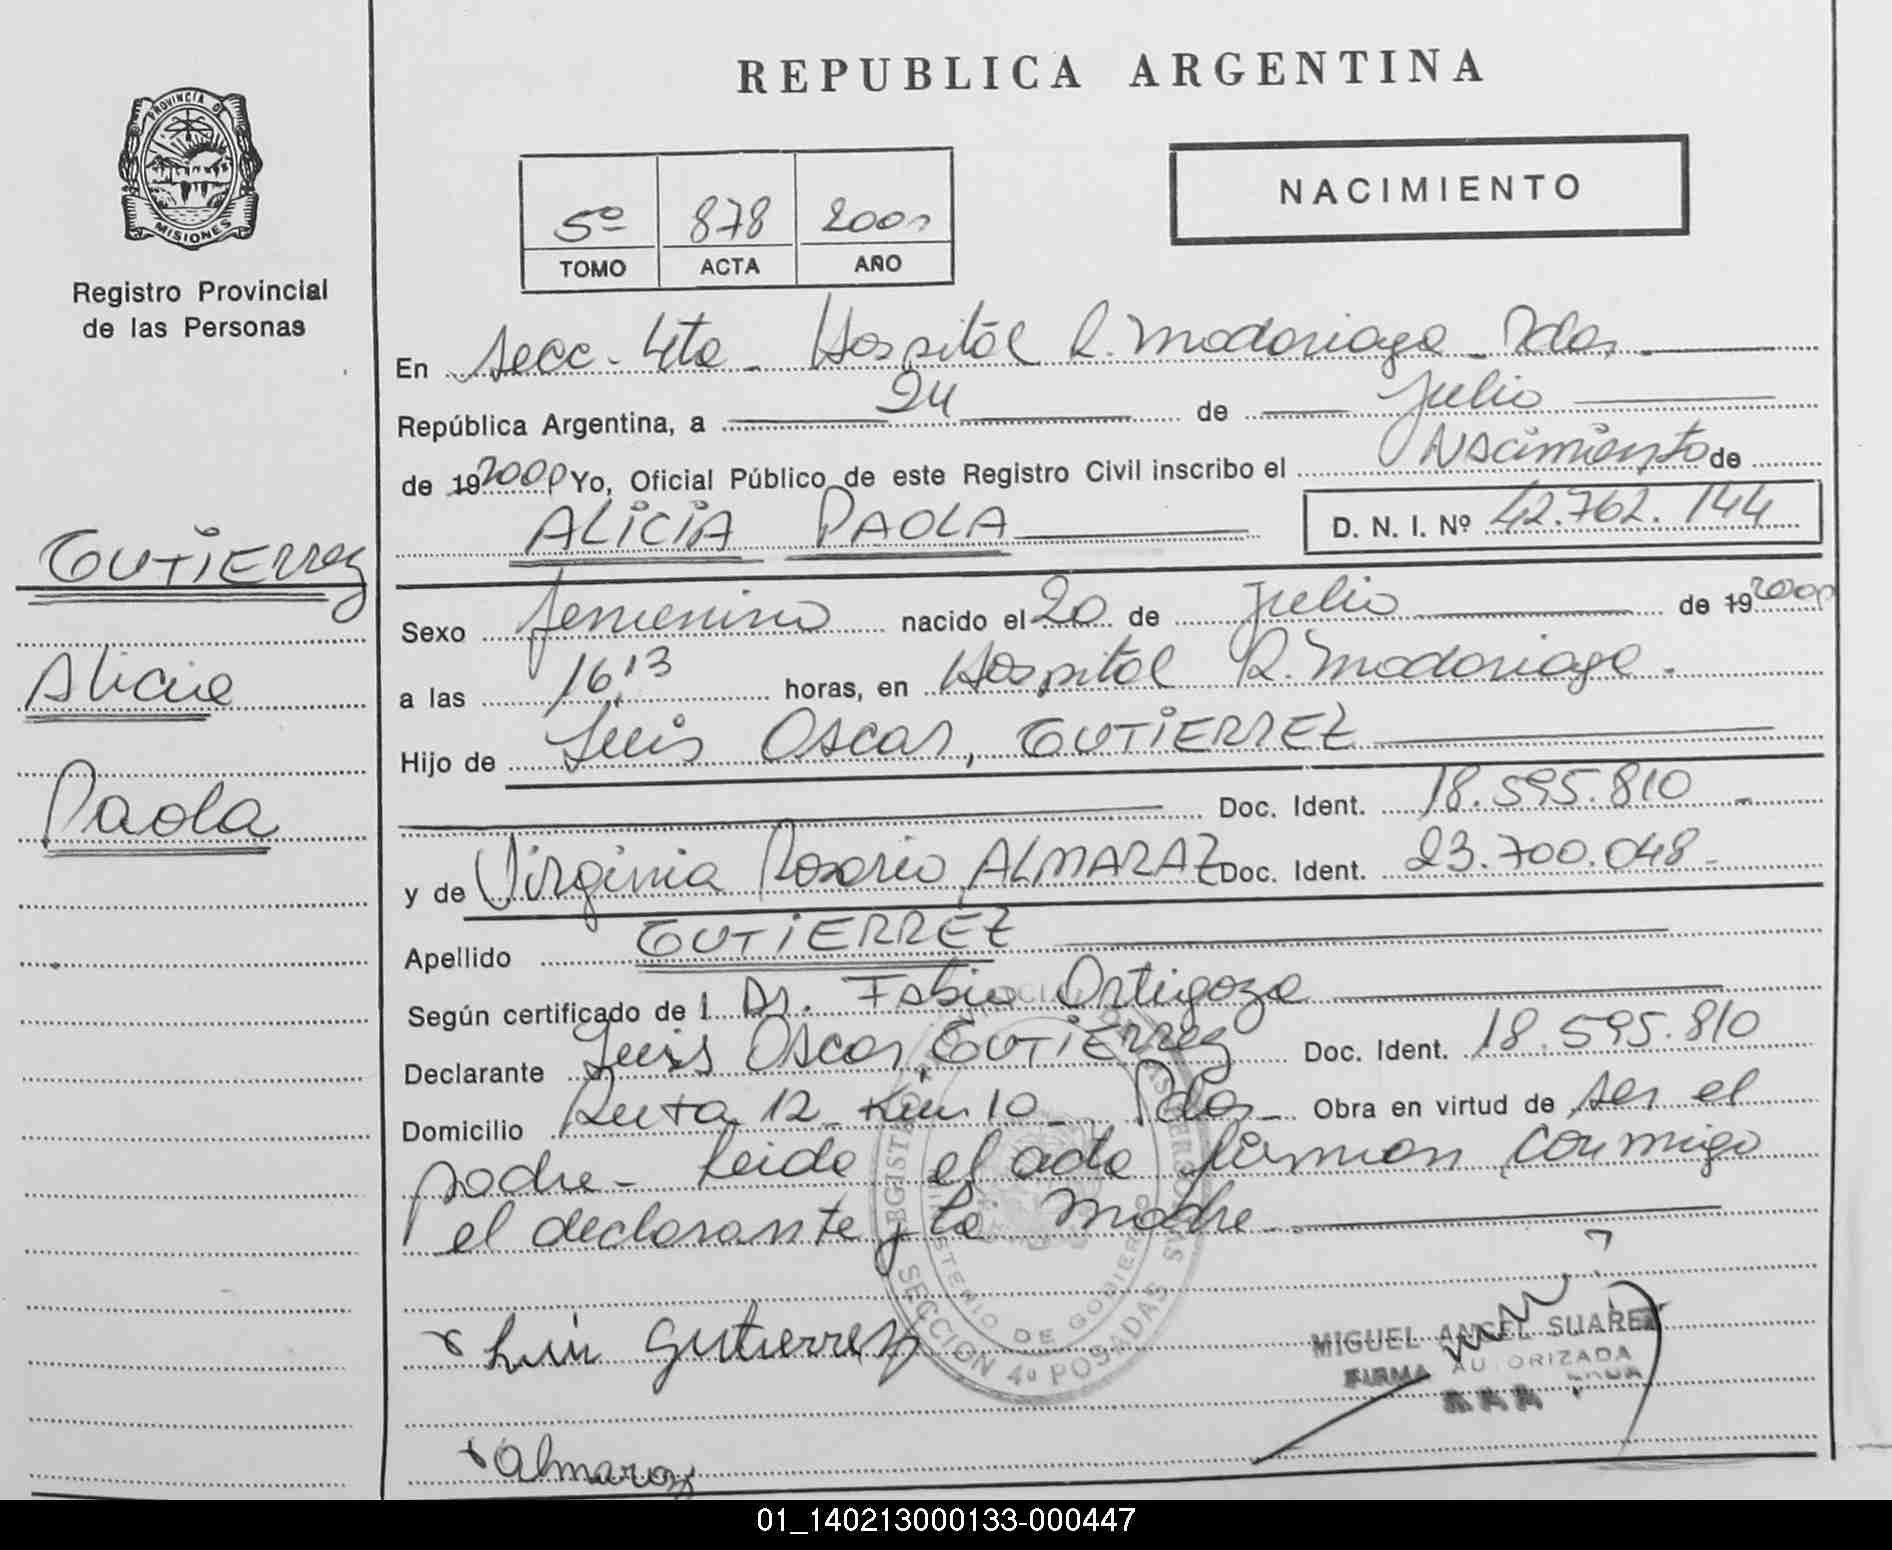 REPUBLICA ARGENTINA
PROVINCIA DE
MISIONES
Registro Provincial
de las Personas
NACIMIENTO
5º 878 2000
TOMO ACTA AÑO
En Secc. 4ta - Hospital R. Madariaga - Pdas.
República Argentina, a 24 de Julio
de 19 2000 Yo, Oficial Público de este Registro Civil inscribo el Nacimiento de
ALICIA PAOLA D. N. I. Nº 42.762.144
GUTIERREZ
Alicia
Paola
Sexo femenino nacido el 20 de Julio de 19 2000
a las 16,13 horas, en Hospital R. Madariaga.
Hijo de Luis Oscar, GUTIERREZ
Doc. Ident. 18.595.810 -
y de Virginia Rosario ALMARAZ Doc. Ident. 23.700.048 -
Apellido GUTIERREZ
Según certificado de l Dr. Fabio Ortigoza
Declarante Luis Oscar, GUTIERREZ Doc. Ident. 18.595.810
Domicilio Ruta 12 Km 10 - Pdas - Obra en virtud de ser el
padre - leida el acta firman conmigo
el declarante y la madre
MINISTERIO DE GOBIERNO
SECCION 4ª POSADAS
Luis Gutierrez
MIGUEL ANGEL SUAREZ
FIRMA AUTORIZADA
Almaraz
01_140213000133-000447